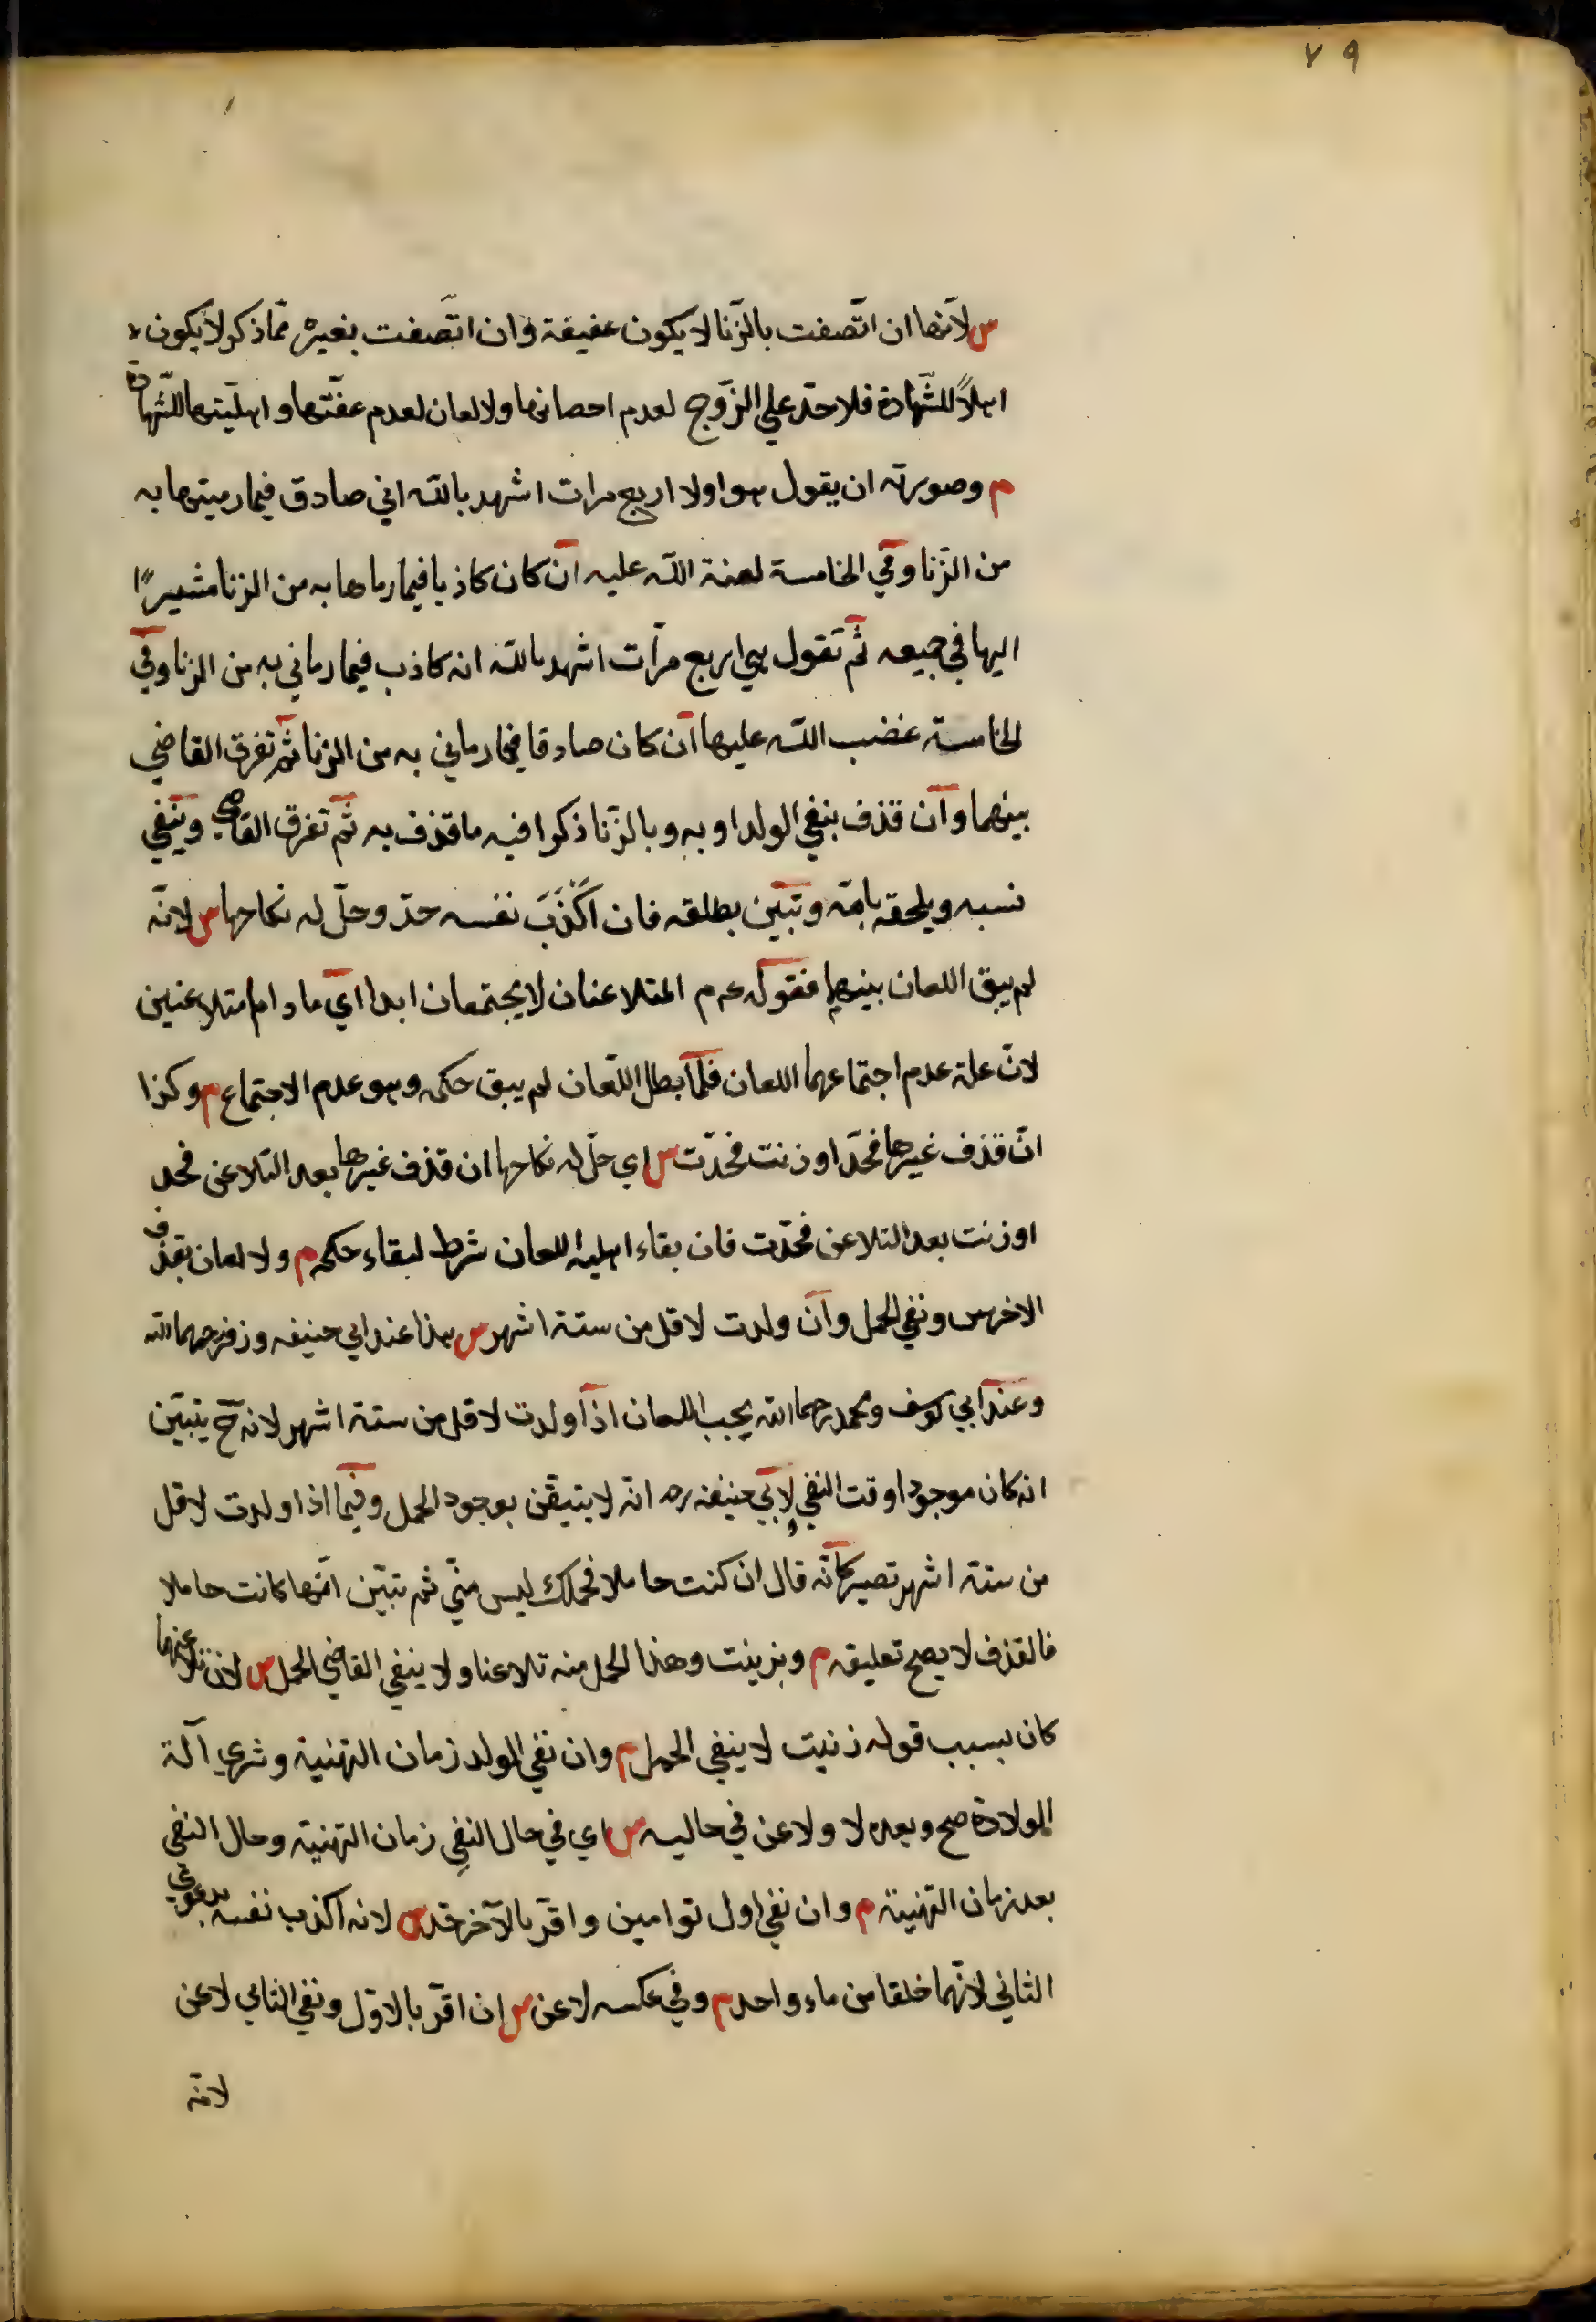 ٧٩
س لانها ان اتّصفت بالزّنا لا يكون عفيفة وان اتّصفت بغيره ممّا ذكر لا يكون
اهلاً للشّهادة فلا حدّ علي الزّوج لعدم احصانها ولا لعان لعدم عفّتها واهليّتها للشّهادة
م وصورته ان يقول هو اولا اربع مرات اشهد بالله اني صادق فيما رميتها به
من الزّنا وفي الخامسة لعنة الله عليه ان كان كاذبا فيما رماها به من الزنا مشيرًا
اليها في جميعه ثم تقول هي اربع مرّات اشهد بالله انه كاذب فيما رماني به من الزنا وفي
الخامسة غضب الله عليها ان كان صادقا فيما رماني به من الزنا ثم تفرق القاضي
بينهما وان قذف بنفي الولد او به وبالزّنا ذكرا فيه ما قذف به ثم تفرق القاضي وينفي
نسبه ويلحقه بامّه وتبين بطلقه فان اَكْذَبَ نفسه حدّ وحلّ له نكاحها س لانّه
لم يبق اللعان بينهما فقوله عم م المتلاعنان لا يجتمعان ابدا اي ما داما متلاعنين
لانّ علة عدم اجتماعهما اللعان فلمّا بطل اللّعان لم يبق حكمه وهو عدم الاجتماع م وكذا
ان قذف غيرها فحدّ او زنت فحدّت س اي حلّ له نكاحها ان قذف غيرها بعد التلاعن فحد
او زنت بعد التلاعن فحدّت فان بقاء اهلية اللعان شرط لبقاء حكمه م ولا لعان بقذف
الاخرس ونفي الحمل وان ولدت لاقل من ستة اشهر س هذا عند ابي حنيفه وزفر رحهما الله
وعند ابي يوسف ومحمد رحهما الله يجب اللعان اذا ولدت لاقل من ستة اشهر لانه ح يتبيّن
انه كان موجودا وقت النفي ولابي حنيفه رحه انّه لا يتيقّن بوجود الحمل وفيما اذا ولدت لاقل
من ستة اشهر تصير كانّه قال ان كنت حاملا فحملك ليس منّي ثم تبيّن انّها كانت حاملا
فالقذف لا يصح تعليقه م وبزنيت وهذا الحمل منه تلاعنا ولا ينفي القاضي الحمل س لان تلاعنهما
كان بسبب قوله زنيت لا ينفي الحمل م وان نفي الولد زمان التهنية وشري آلة
الولادة صح وبعده لا ولاعن في حاليه س اي في حال النفي زمان التهنية وحال النفي
بعد زمان التهنية م وان نفي اول توامين واقرّ بالآخر حد س لانه اكذب نفسه بدعوي
الثاني لانّهما خلقا من ماء واحد م وفي عكسه لاعن س ان اقرّ بالاوّل ونفي الثاني لاعن
لانّه